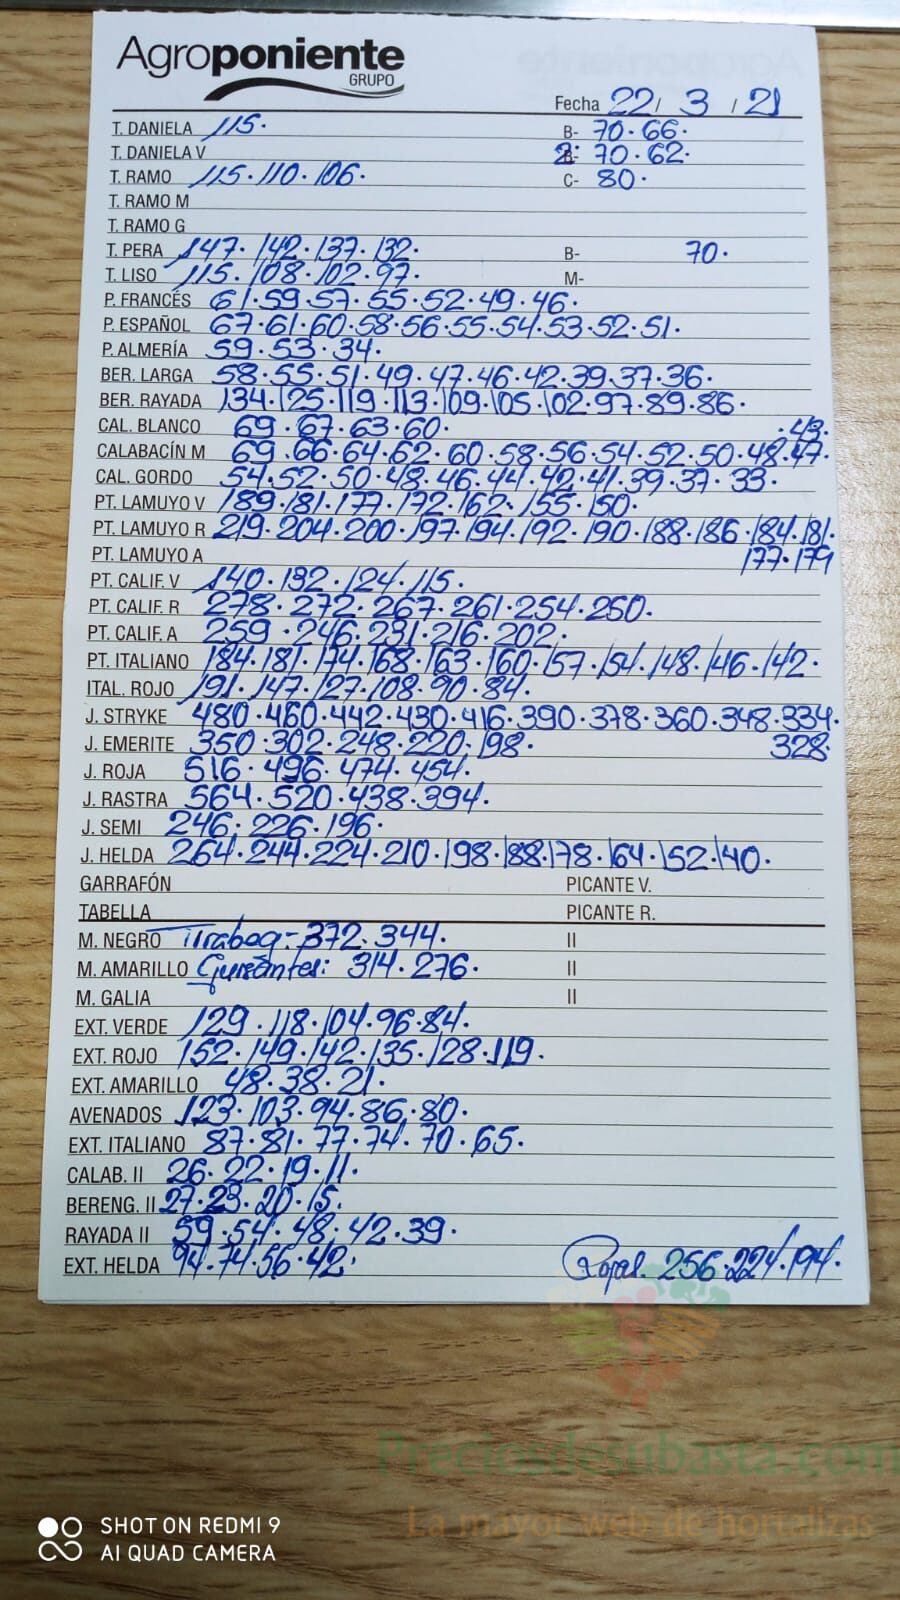 Agroponiente
GRUPO
Fecha 22/ 3 / 21
T. DANIELA 115. B- 70.66.
T. DANIELA V 2: 70.62.
T. RAMO 115.110.106. C- 80.
T. RAMO M
T. RAMO G
T. PERA 147.142.137.132. B- 70.
T. LISO 115.108.102.97. M-
P. FRANCÉS 61.59.57.55.52.49.46.
P. ESPAÑOL 67.61.60.58.56.55.54.53.52.51.
P. ALMERÍA 59.53.34.
BER. LARGA 58.55.51.49.47.46.42.39.37.36.
BER. RAYADA 134.125.119.113.109.105.102.97.89.86.
CAL. BLANCO 69.67.63.60. .43.
CALABACÍN M 69.66.64.62.60.58.56.54.52.50.48.47.
CAL. GORDO 54.52.50.48.46.44.42.41.39.37.33.
PT. LAMUYO V 189.181.177.172.162.155.150.
PT. LAMUYO R 219.204.200.197.194.192.190.188.186.184.181.
PT. LAMUYO A 177.179
PT. CALIF. V 140.132.124.115.
PT. CALIF. R 278.272.267.261.254.250.
PT. CALIF. A 259.246.231.216.202.
PT. ITALIANO 184.181.174.168.163.160.157.154.148.146.142.
ITAL. ROJO 191.147.127.108.90.84.
J. STRYKE 480.460.442.430.416.390.378.360.348.334.
J. EMERITE 350.302.248.220.198. 328.
J. ROJA 516.496.474.454.
J. RASTRA 564.520.438.394.
J. SEMI 246.226.196.
J. HELDA 264.244.224.210.198.188.178.164.152.140.
GARRAFÓN PICANTE V.
TABELLA PICANTE R.
M. NEGRO Tirabeq-372.344. II
M. AMARILLO Guisantes: 314.276. II
M. GALIA II
EXT. VERDE 129.118.104.96.84.
EXT. ROJO 152.149.142.135.128.119.
EXT. AMARILLO 48.38.21.
AVENADOS 123.103.94.86.80.
EXT. ITALIANO 87.81.77.74.70.65.
CALAB. II 26.22.19.11.
BERENG. II 27.23.20.15.
RAYADA II 59.54.48.42.39.
EXT. HELDA 94.74.56.42. Rojas. 256.224.194.
Preciosdesubasta.com
La mayor web de hortalizas
SHOT ON REDMI 9
AI QUAD CAMERA